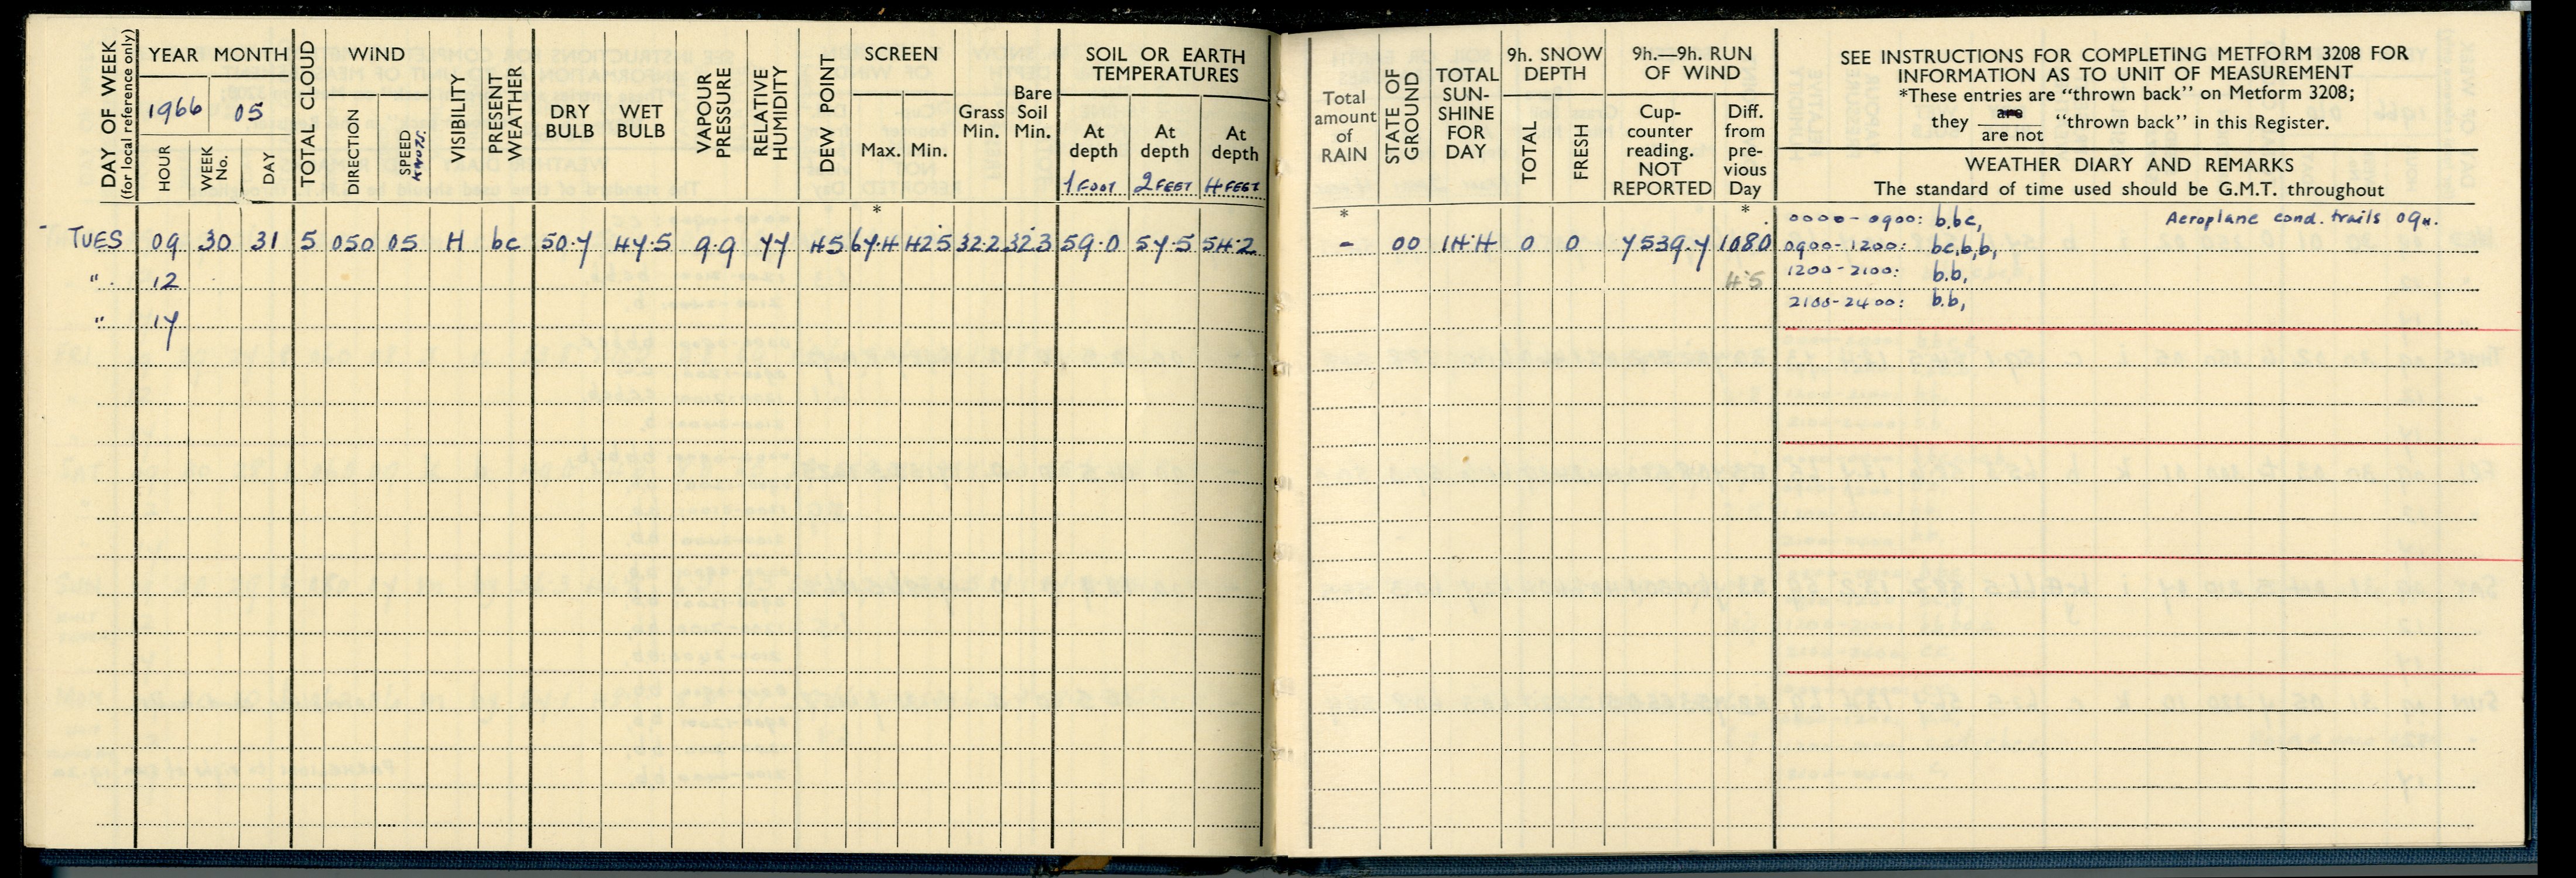 DAY OF WEEK
(for local reference only)
YEAR MONTH
1966 05
HOUR
WEEK No.
DAY
TOTAL CLOUD
WIND
DIRECTION
SPEED KNOTS.
VISIBILITY
PRESENT WEATHER
DRY BULB
WET BULB
VAPOUR PRESSURE
RELATIVE HUMIDITY
DEW POINT
SCREEN
Max. Min.
Grass Min.
Bare Soil Min.
SOIL OR EARTH
TEMPERATURES
At depth 1 FOOT
At depth 2 FEET
At depth 4 FEET
Total amount of RAIN
STATE OF GROUND
TOTAL SUN-SHINE FOR DAY
9h. SNOW DEPTH
TOTAL
FRESH
9h.—9h. RUN OF WIND
Cup-counter reading. NOT REPORTED
Diff. from pre-vious Day
SEE INSTRUCTIONS FOR COMPLETING METFORM 3208 FOR
INFORMATION AS TO UNIT OF MEASUREMENT
*These entries are “thrown back” on Metform 3208;
they are / are not “thrown back” in this Register.
WEATHER DIARY AND REMARKS
The standard of time used should be G.M.T. throughout
* * *
TUES 09 30 31 5 050 05 H bc 50.7 47.5 9.9 77 45 67.4 42.5 32.2 32.3 59.0 57.5 54.2 - 00 14.4 0 0 7539.7 108.0
" . 12 45
" 17
0000-0900: b.bc, Aeroplane cond. trails 09H.
0900-1200: bc,b,b,
1200-2100: b.b,
2100-2400: b.b,